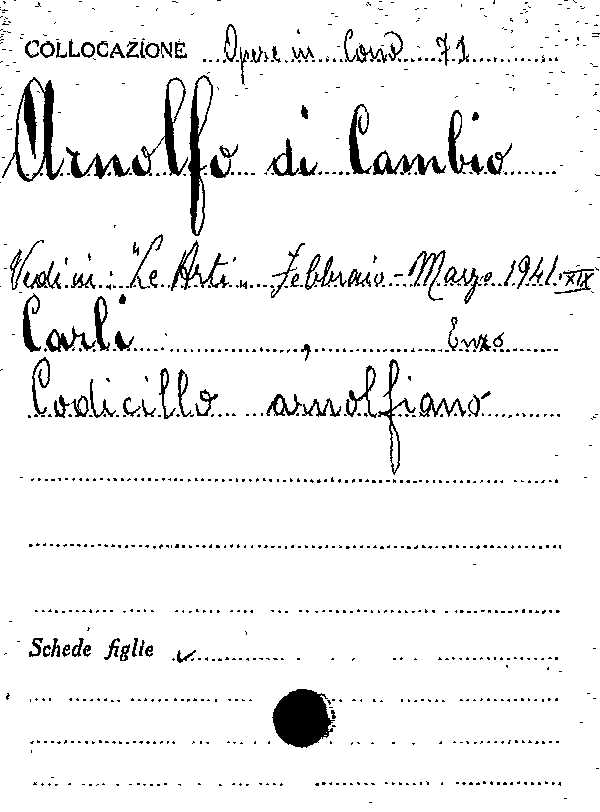 COLLOCAZIONE Opere in Cons 71
Arnolfo di Cambio
Vedi in: "Le Arti" Febbraio - Marzo 1941. XIX
Carli , Enzo
Codicillo arnolfiano
Schede figlie ✓